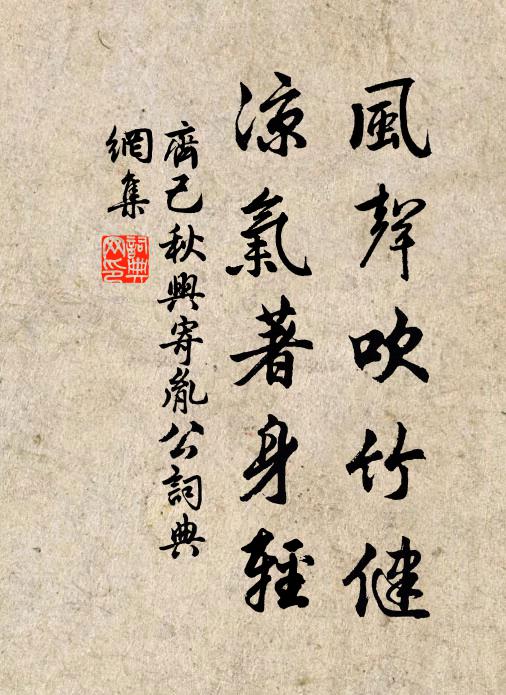 風聲吹竹健
涼氣著身輕
齊己秋興寄胤公詞典
網集
詞典
网印